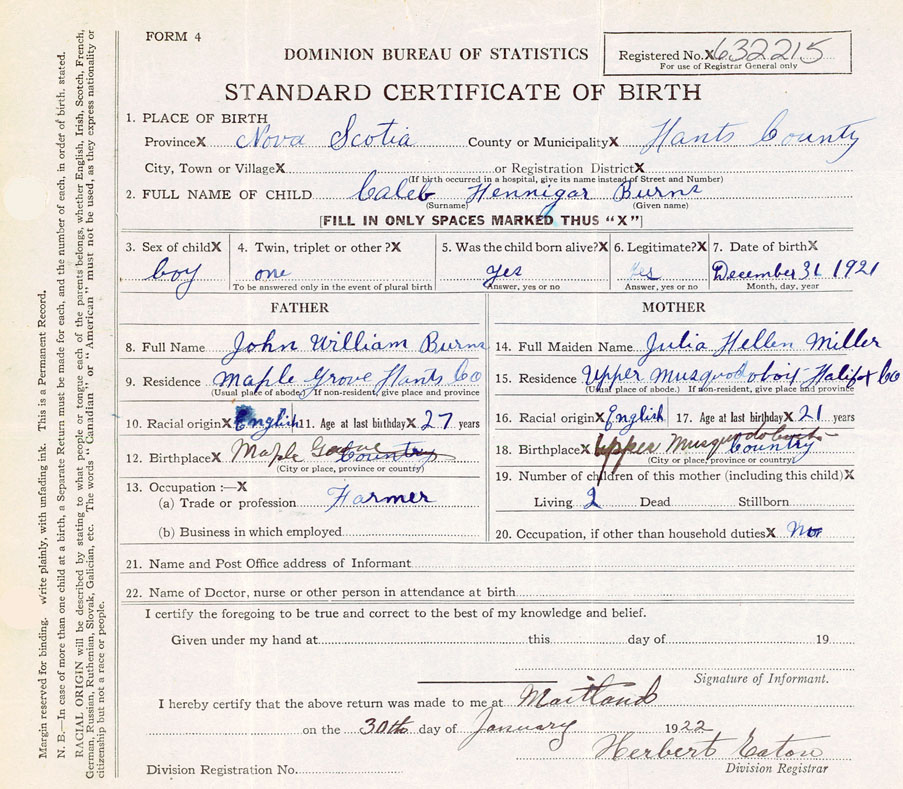 FORM 4
DOMINION BUREAU OF STATISTICS
Registered No. X 632215
For use of Registrar General only
STANDARD CERTIFICATE OF BIRTH
1. PLACE OF BIRTH
Province X Nova Scotia County or Municipality X Hants County
City, Town or Village X or Registration District X
(If birth occurred in a hospital, give its name instead of Street and Number)
2. FULL NAME OF CHILD Caleb Hennigar Burns
(Surname) (Given name)
[FILL IN ONLY SPACES MARKED THUS "X"]
3. Sex of child X 4. Twin, triplet or other ? X 5. Was the child born alive? X 6. Legitimate? X 7. Date of birth X
boy one yes yes December 31 1921
To be answered only in the event of plural birth Answer, yes or no Answer, yes or no Month, day, year
FATHER MOTHER
8. Full Name John William Burns
9. Residence Maple Grove Hants Co
(Usual place of abode) If non-resident, give place and province
10. Racial origin X English 11. Age at last birthday X 27 years
12. Birthplace X Maple Grove Country
(City or place, province or country)
13. Occupation :—X
(a) Trade or profession Farmer
(b) Business in which employed
14. Full Maiden Name Julia Hellen Miller
15. Residence Upper Musquodoboit Halifax Co
(Usual place of abode) If non-resident, give place and province
16. Racial origin X English 17. Age at last birthday X 21 years
18. Birthplace X Upper Musquodoboit Country
(City or place, province or country)
19. Number of children of this mother (including this child) X
Living 2 Dead Stillborn
20. Occupation, if other than household duties X No
21. Name and Post Office address of Informant
22. Name of Doctor, nurse or other person in attendance at birth
I certify the foregoing to be true and correct to the best of my knowledge and belief.
Given under my hand at this day of 19
Signature of Informant.
I hereby certify that the above return was made to me at Maitland
on the 30th day of January 1922
Herbert Eaton
Division Registration No. Division Registrar
Margin reserved for binding. Write plainly, with unfading ink. This is a Permanent Record.
N. B.—In case of more than one child at a birth, a Separate Return must be made for each, and the number of each, in order of birth, stated.
RACIAL ORIGIN will be described by stating to what people or tongue each of the parents belongs, whether English, Irish, Scotch, French,
German, Russian, Ruthenian, Slovak, Galician, etc. The words "Canadian" or "American" must not be used, as they express nationality or
citizenship but not a race or people.